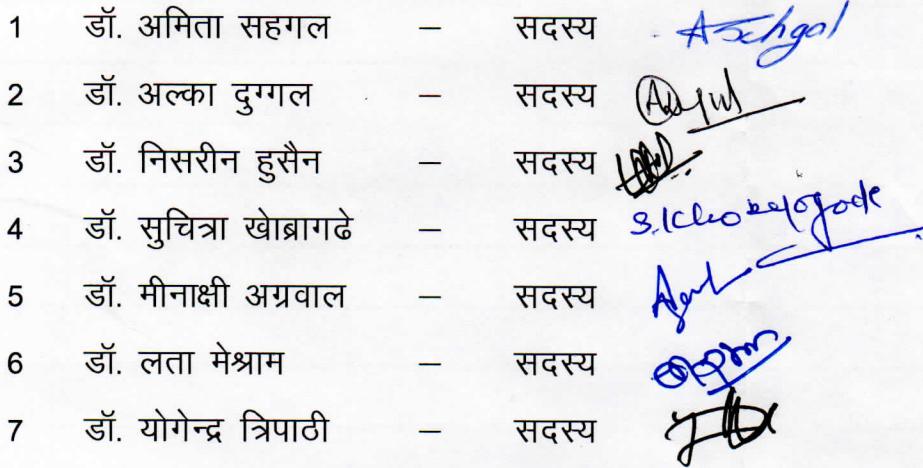 1 डॉ. अमिता सहगल – सदस्य ASehgal
2 डॉ. अल्का दुग्गल – सदस्य
3 डॉ. निसरीन हुसैन – सदस्य
4 डॉ. सुचित्रा खेाब्रागढे – सदस्य
5 डॉ. मीनाक्षी अग्रवाल – सदस्य
6 डॉ. लता मेश्राम – सदस्य
7 डॉ. योगेन्द्र त्रिपाठी – सदस्य